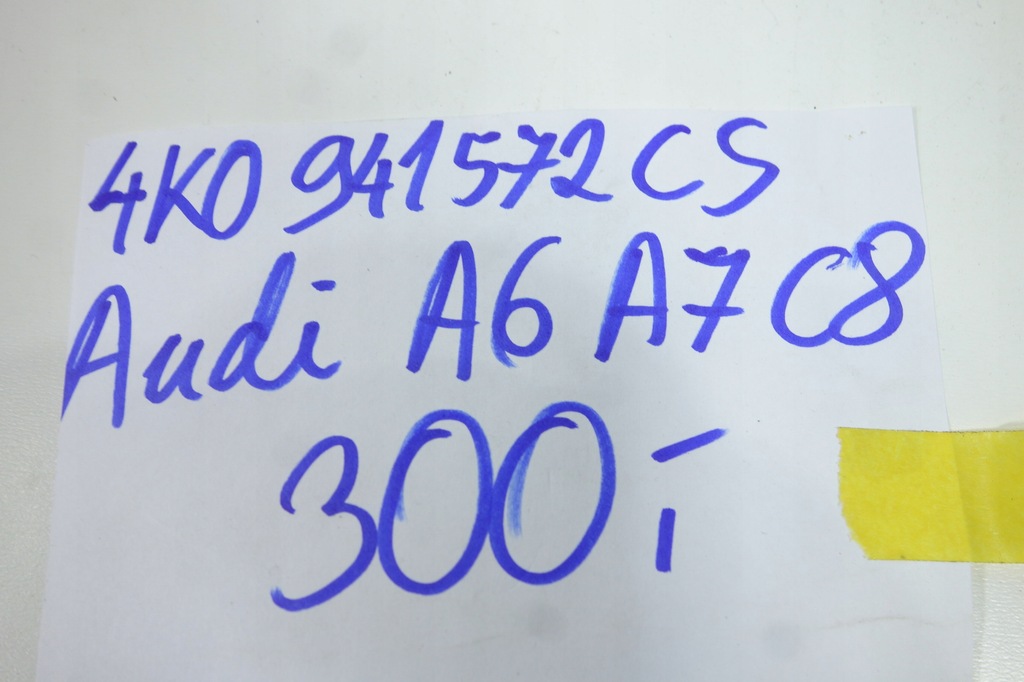 4K0 941572 CS
Audi A6 A7 C8
300,-